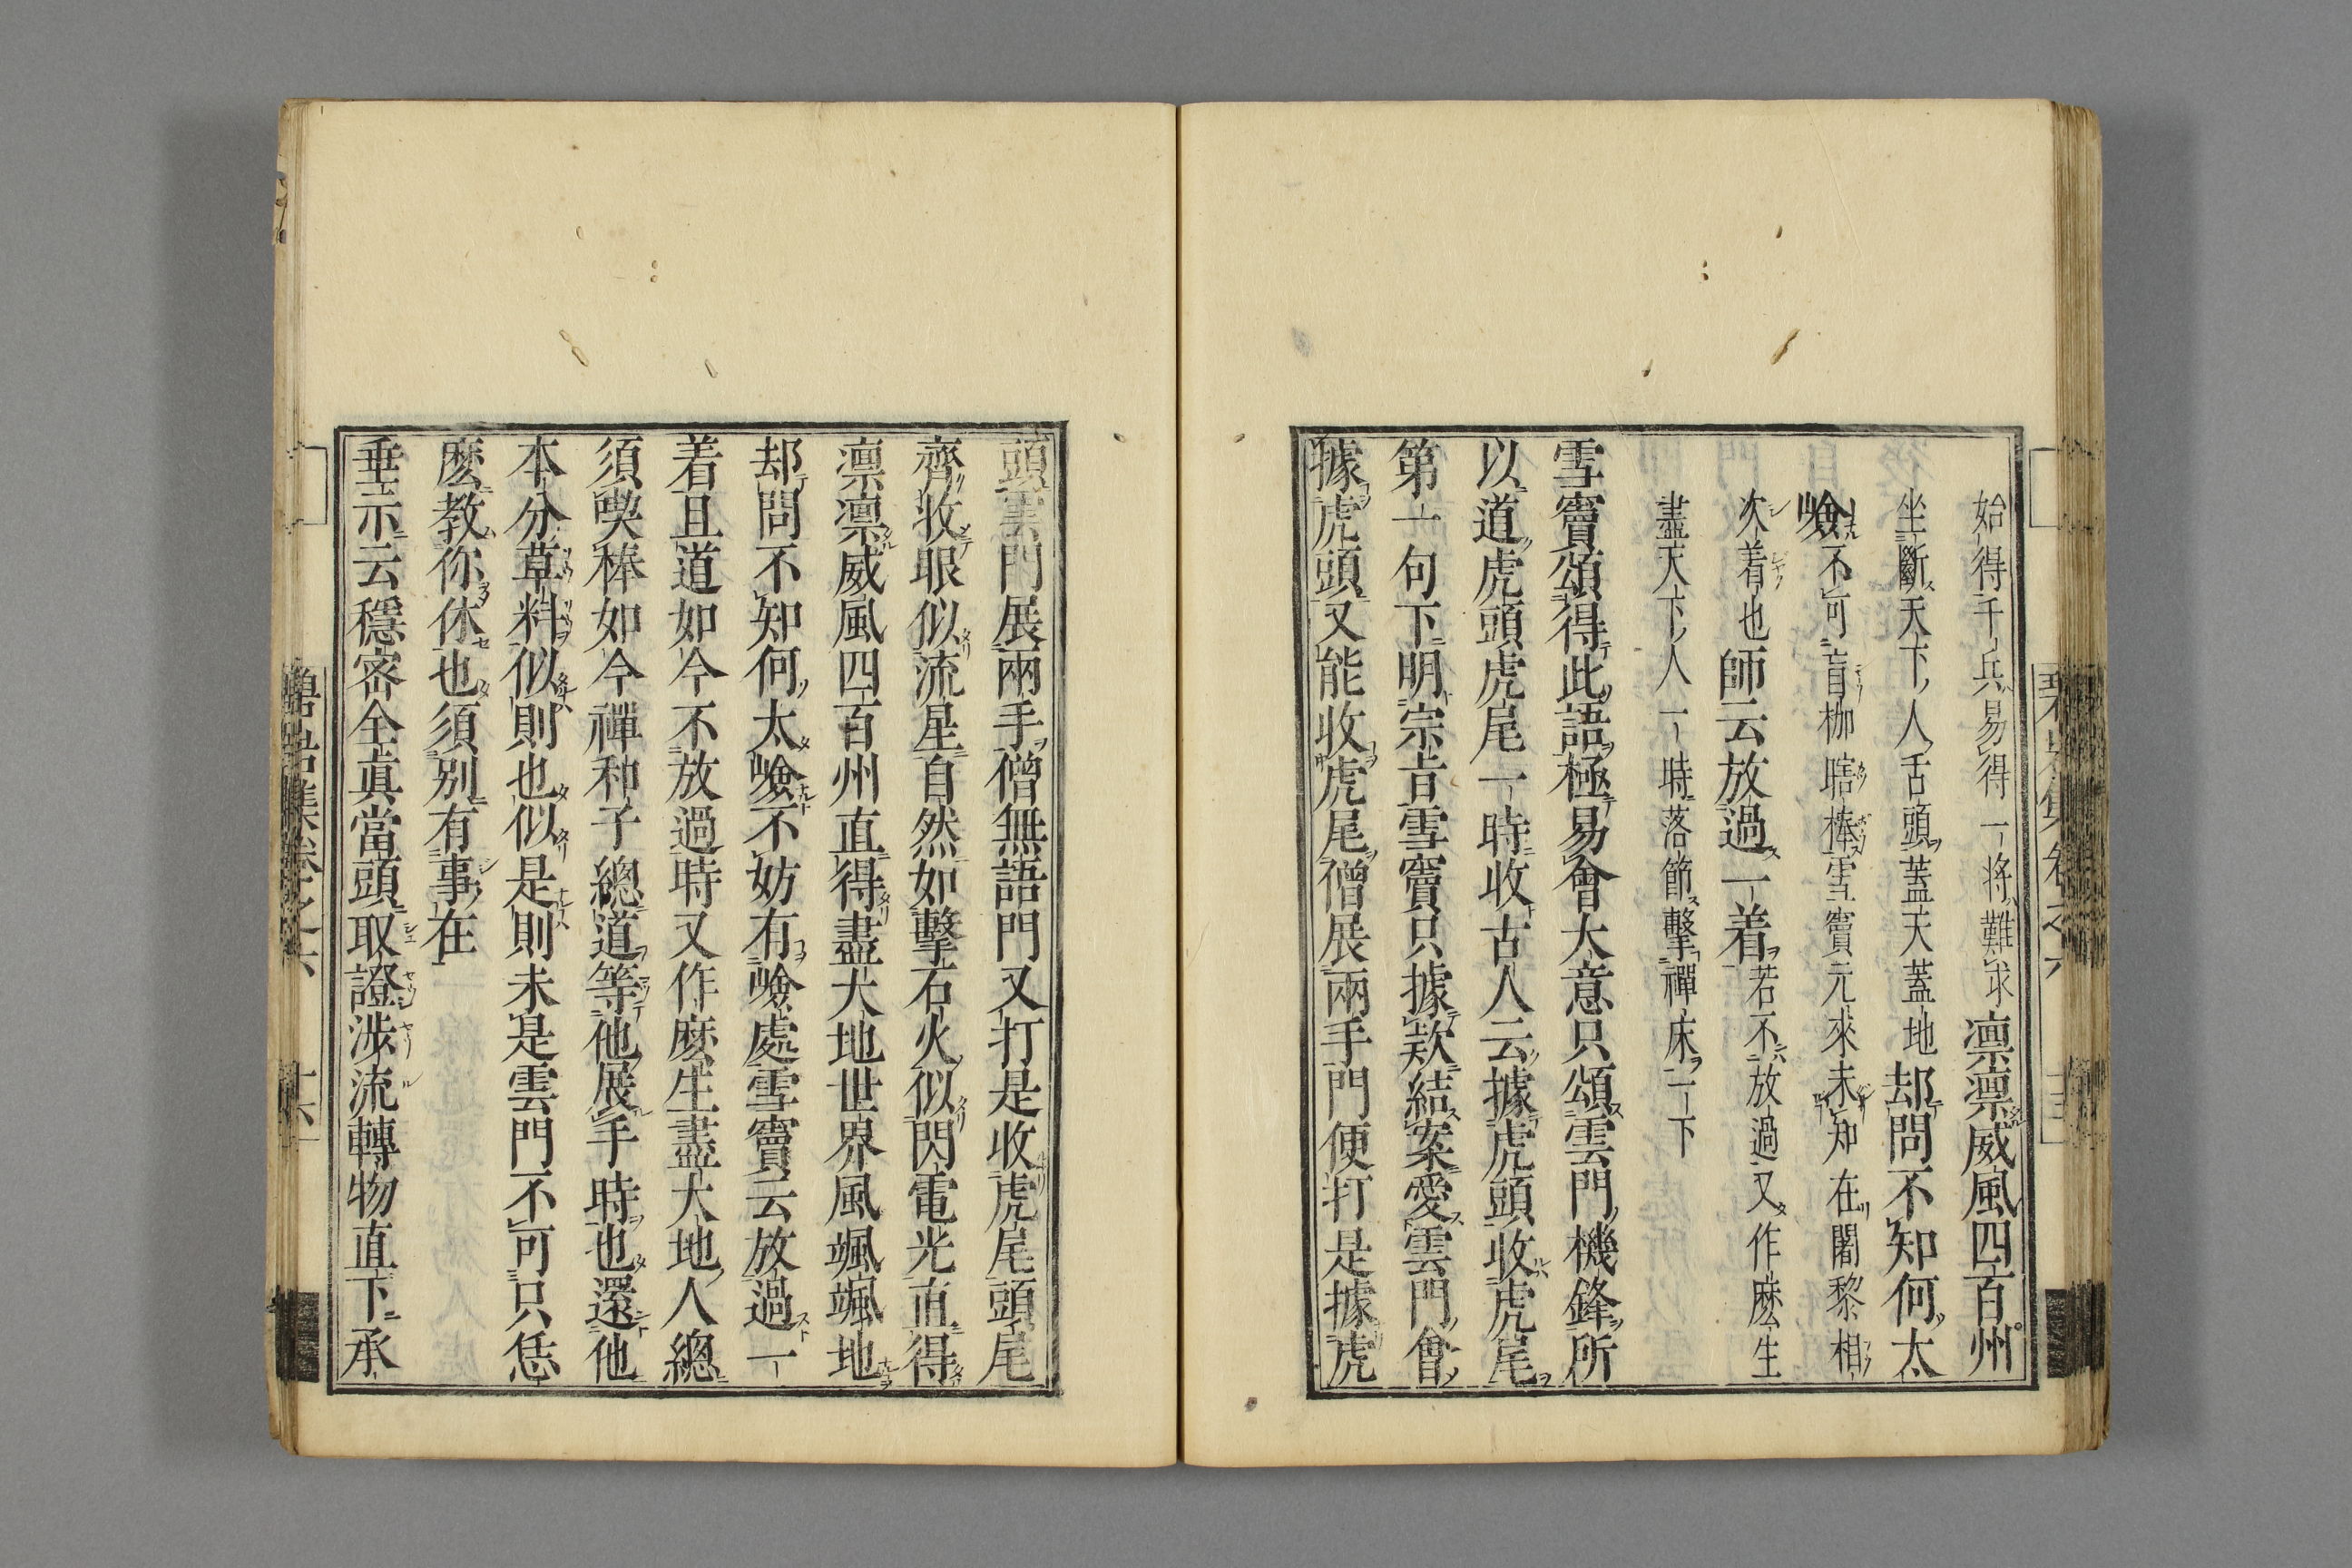 始得千兵易得一將難求凛凛威風四百州
坐斷天下人舌頭蓋天蓋地却問不知何太
嶮不可盲枷瞎棒雪竇元來未知在闍黎相
次着也師云放過一着若不放過又作麽生
盡天下人一時落節擊禪床一下
雪竇頌得此語極易會大意只頌雲門機鋒所
以道虎頭虎尾一時收古人云據虎頭收虎尾
第一句下明宗旨雪竇只據欵結案愛雲門會
據虎頭又能收虎尾僧展兩手門便打是據虎
頭雲門展兩手僧無語門又打是收虎尾頭尾
齊收眼似流星自然如擊石火似閃電光直得
凛凛威風四百州直得盡大地世界風颯颯地
却問不知何太嶮不妨有嶮處雪竇云放過一
着且道如今不放過時又作麽生盡大地人總
須喫棒如今禪和子總道等他展手時也還他
本分草料似則也似是則未是雲門不可只恁
麽教你休也須別有事在
垂示云穩密全眞當頭取證涉流轉物直下承
碧巖集卷之六